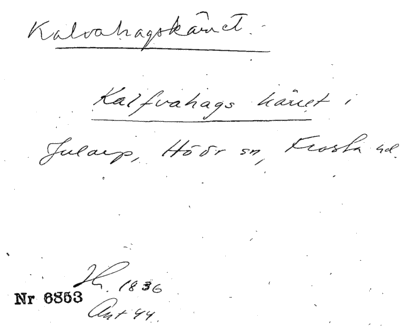 Kalvahagskärret.
Kalfvahags kärret i
Jularp, Höör sn, Frosta hd.
Sk. 1836
Nr 6853
Akt 44.